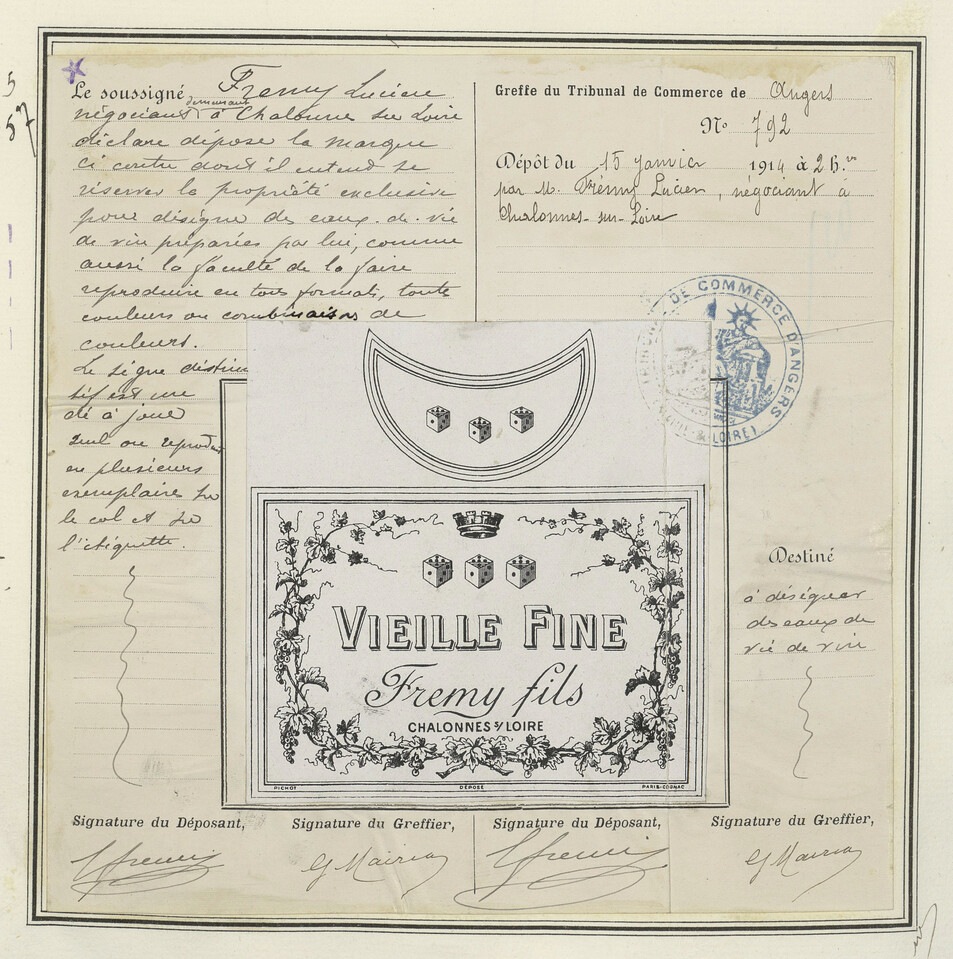 5
57
Le soussigné Fremy Lucien
négociant demeurant à Chalonnes sur Loire
déclare déposer la marque
ci contre dont il entend se
réserver la propriété exclusive
pour désigner des eaux. de. vie
de vin préparées par lui, comme
aussi la faculté de la faire
reproduire en tous formats, toute
couleurs ou combinaisons de
couleurs.
Le signe distinc
tif est un
dé à jouer
seul ou reproduit
en plusieurs
exemplaire sur
le col et sur
l'étiquette.
Greffe du Tribunal de Commerce de Angers
No 792
Dépôt du 15 janvier 1914 à 2 h.
par M. Frémy Lucien, négociant à
Chalonnes-sur-Loire
DE COMMERCE D'ANGERS
LOIRE)
VIEILLE FINE
Fremy fils
CHALONNES S/ LOIRE
PICHOT DÉPOSÉ PARIS-COGNAC
Destiné
à désigner
des eaux de
vie de vin
Signature du Déposant, Signature du Greffier, Signature du Déposant, Signature du Greffier,